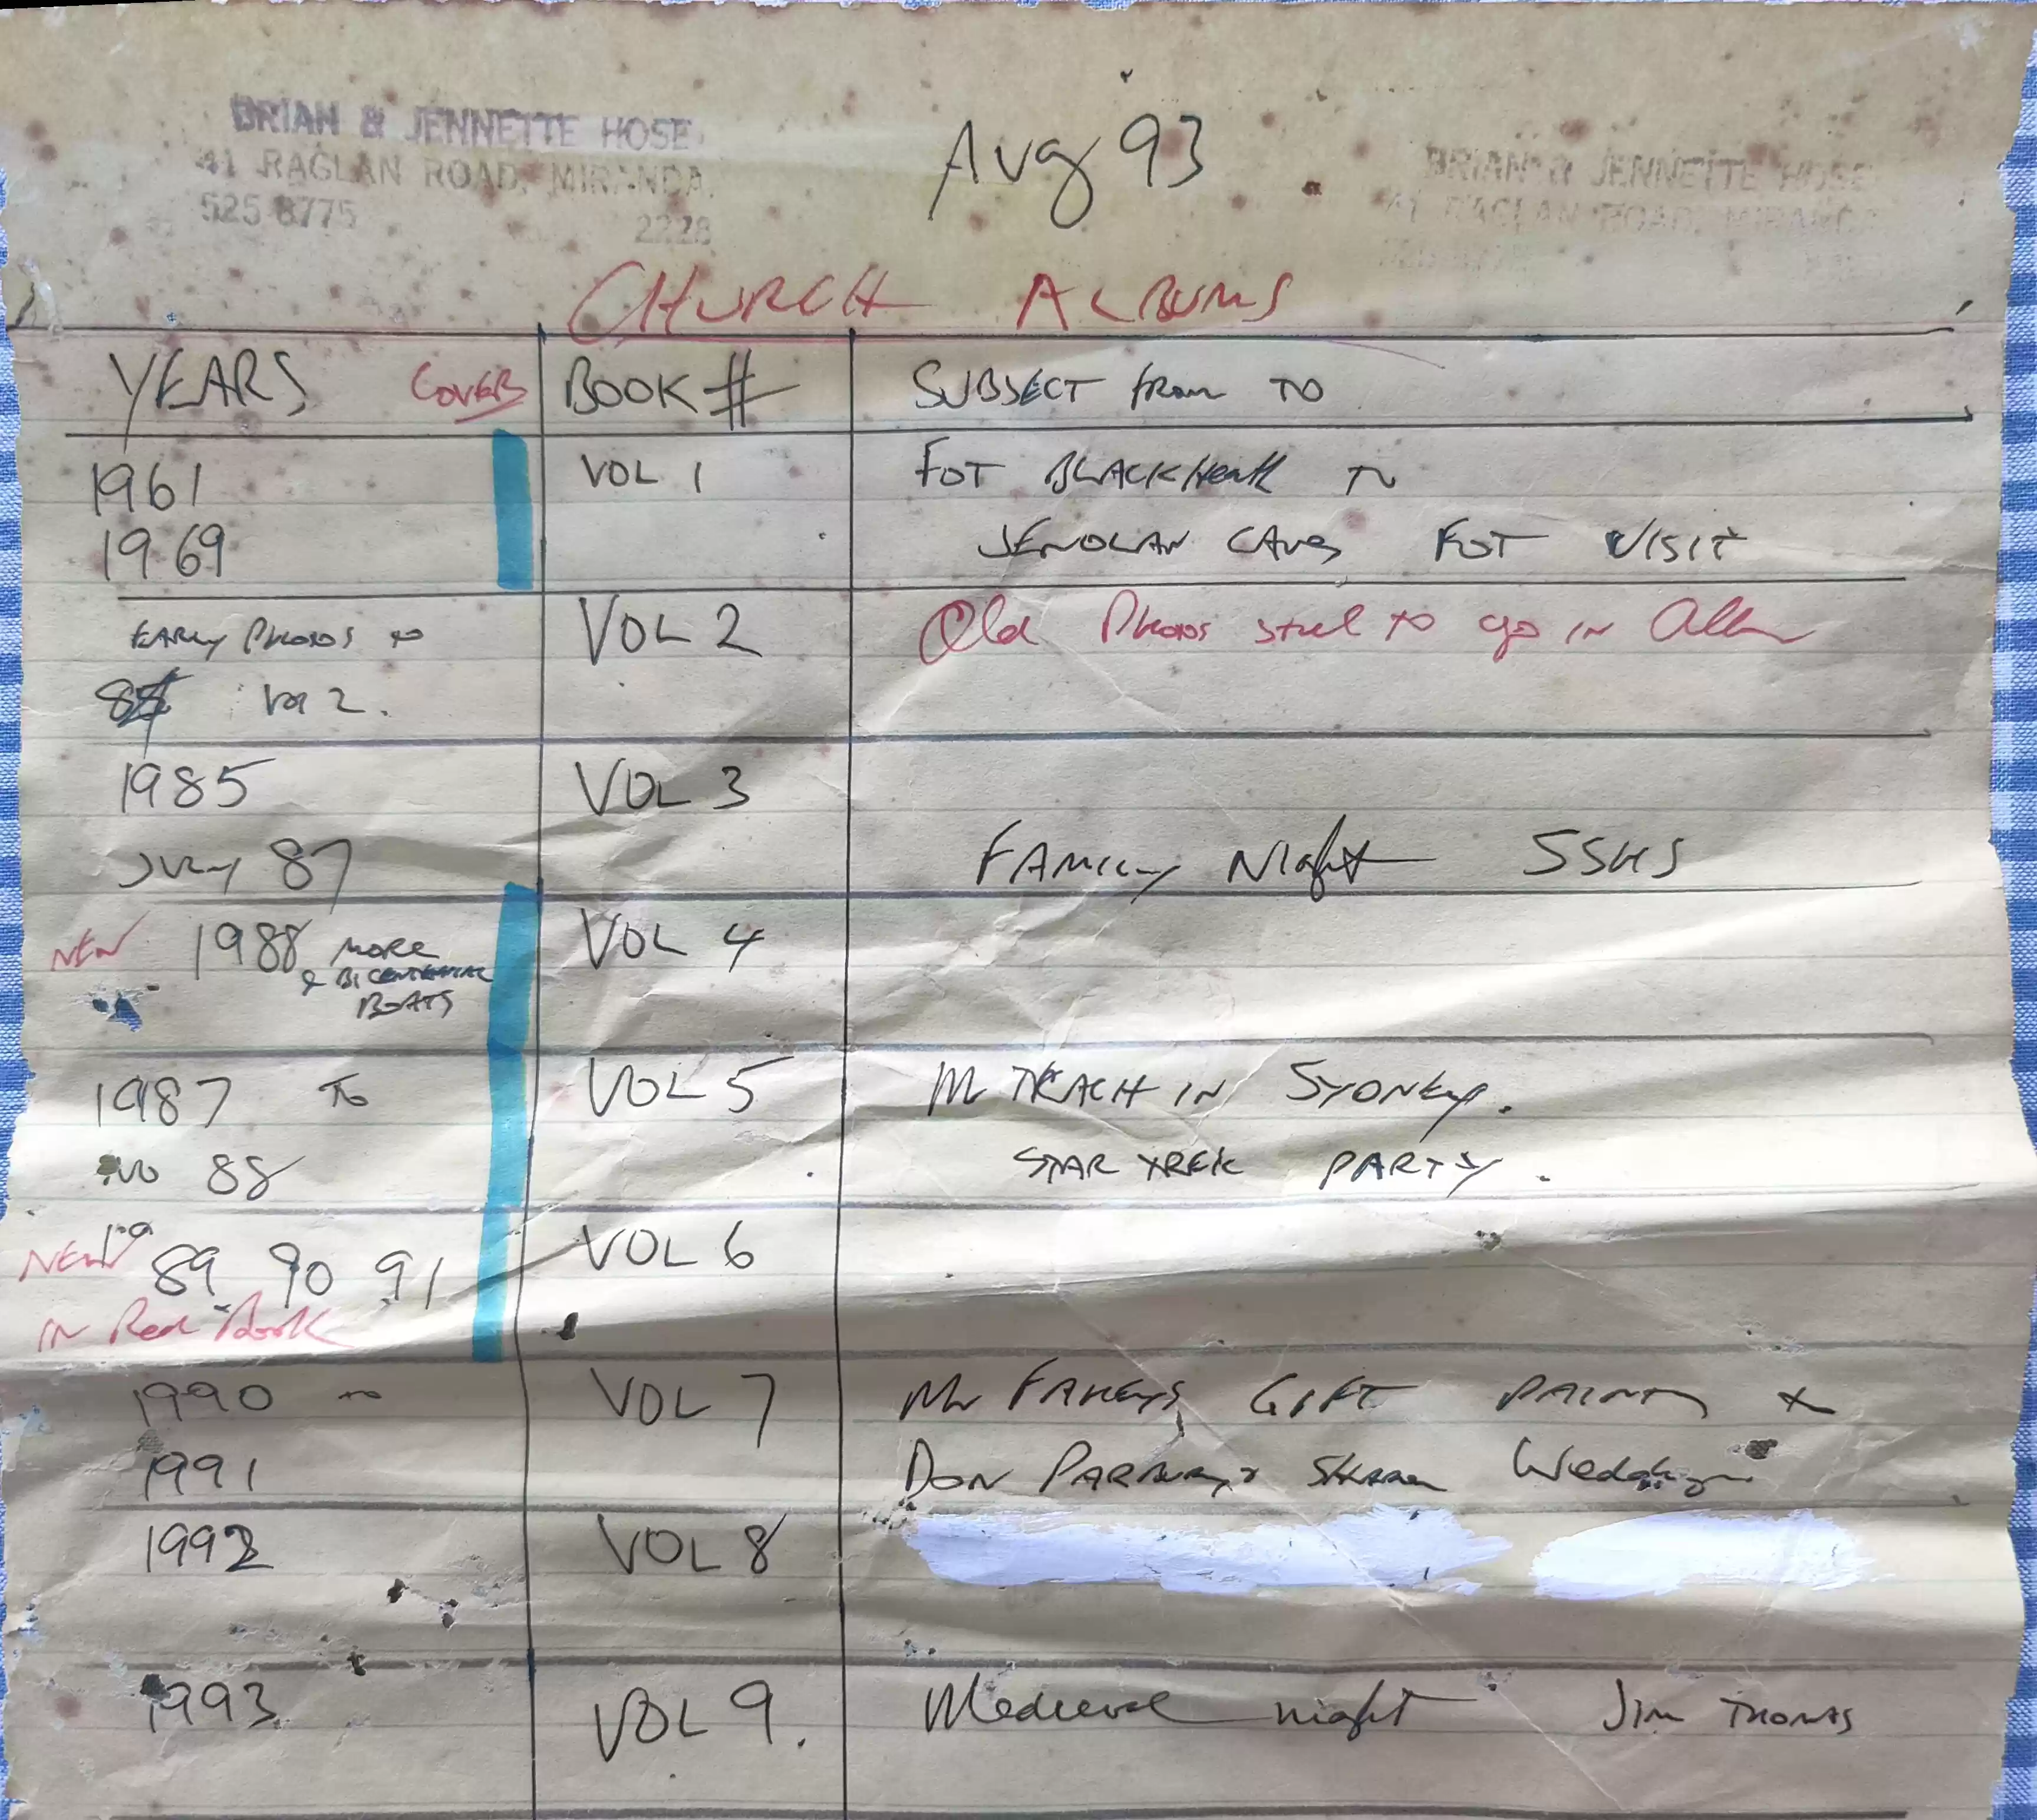 BRIAN & JENNETTE HOSE
41 RAGLAN ROAD, MIRANDA.
525 8775 2228
Aug 93
BRIAN & JENNETTE HOSE
41 RAGLAN ROAD, MIRANDA
CHURCH ALBUMS
YEARS COVERS BOOK # SUBJECT from TO
1961 VOL 1 FOT BLACKHeath TO
1969 JENOLAN CAVES FOT VISIT
EARLY PHOTOS TO VOL 2 Old Photos still to go in Album
Vol 2.
1985 VOL 3
JULY 87 FAMILY Night SSHS
NEW 1988 MORE VOL 4
& BICENTENNIAL
BOATS
1987 TO VOL 5 Mr TKACH IN SYDNEY.
88 STAR TREK PARTY.
NEW 19 VOL 6
89 90 91
IN Red Book
1990 TO VOL 7 Mr FAHEYS GIFT PAINTING &
1991 DON PARBURY & Wedding
1992 VOL 8
1993 VOL 9. Medieval night JIM THOMAS